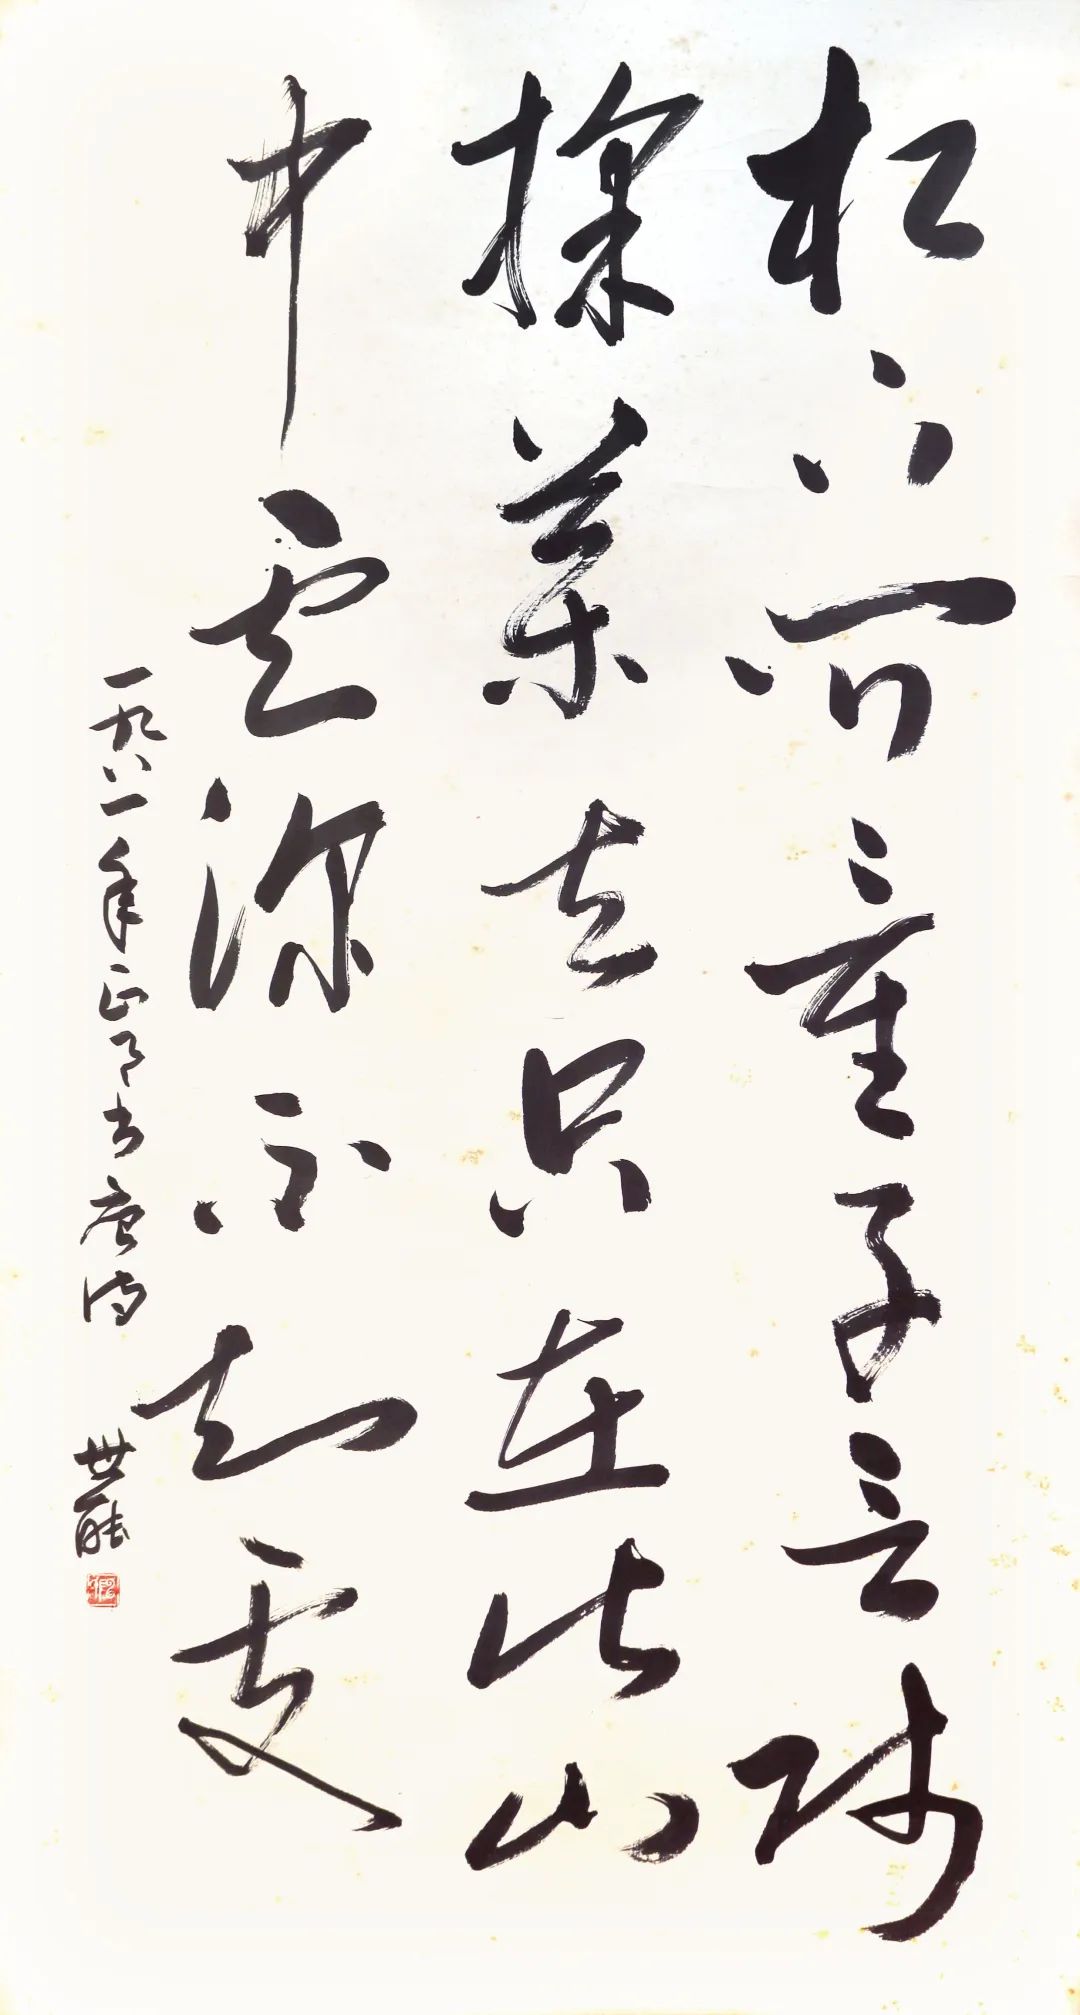 松下问童子言师
採药去只在此山
中云深不知处
一九八一年正月书唐诗
世融